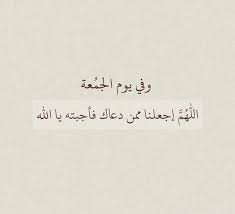 وفي يوم الجُمعة
اللّٰهُمَّ إجعلنا ممن دعاك فأجبته يا الله